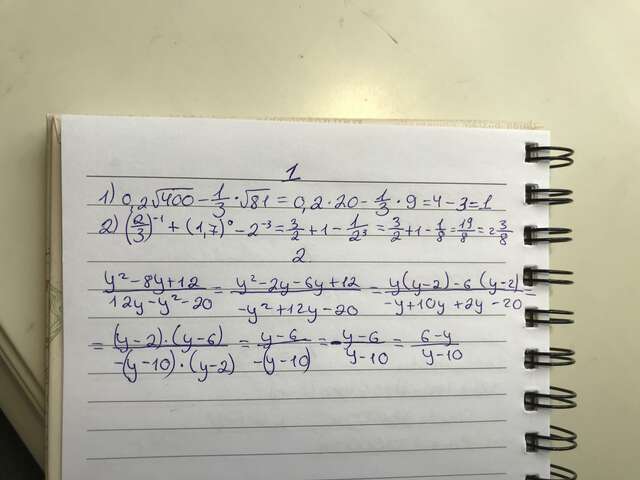 1
1) 0,2√400 - 1/3 · √81 = 0,2 · 20 - 1/3 · 9 = 4 - 3 = 1
2) (2/3)^-1 + (1,7)^0 - 2^-3 = 3/2 + 1 - 1/2^3 = 3/2 + 1 - 1/8 = 19/8 = 2 3/8
2.
(y² - 8y + 12)/(12y - y² - 20) = (y² - 2y - 6y + 12)/(-y² + 12y - 20) = (y(y-2) - 6(y-2))/(-y + 10y + 2y - 20) =
= ((y-2) · (y-6))/(-(y-10) · (y-2)) = (y-6)/(-(y-10)) = -(y-6)/(y-10) = (6-y)/(y-10)